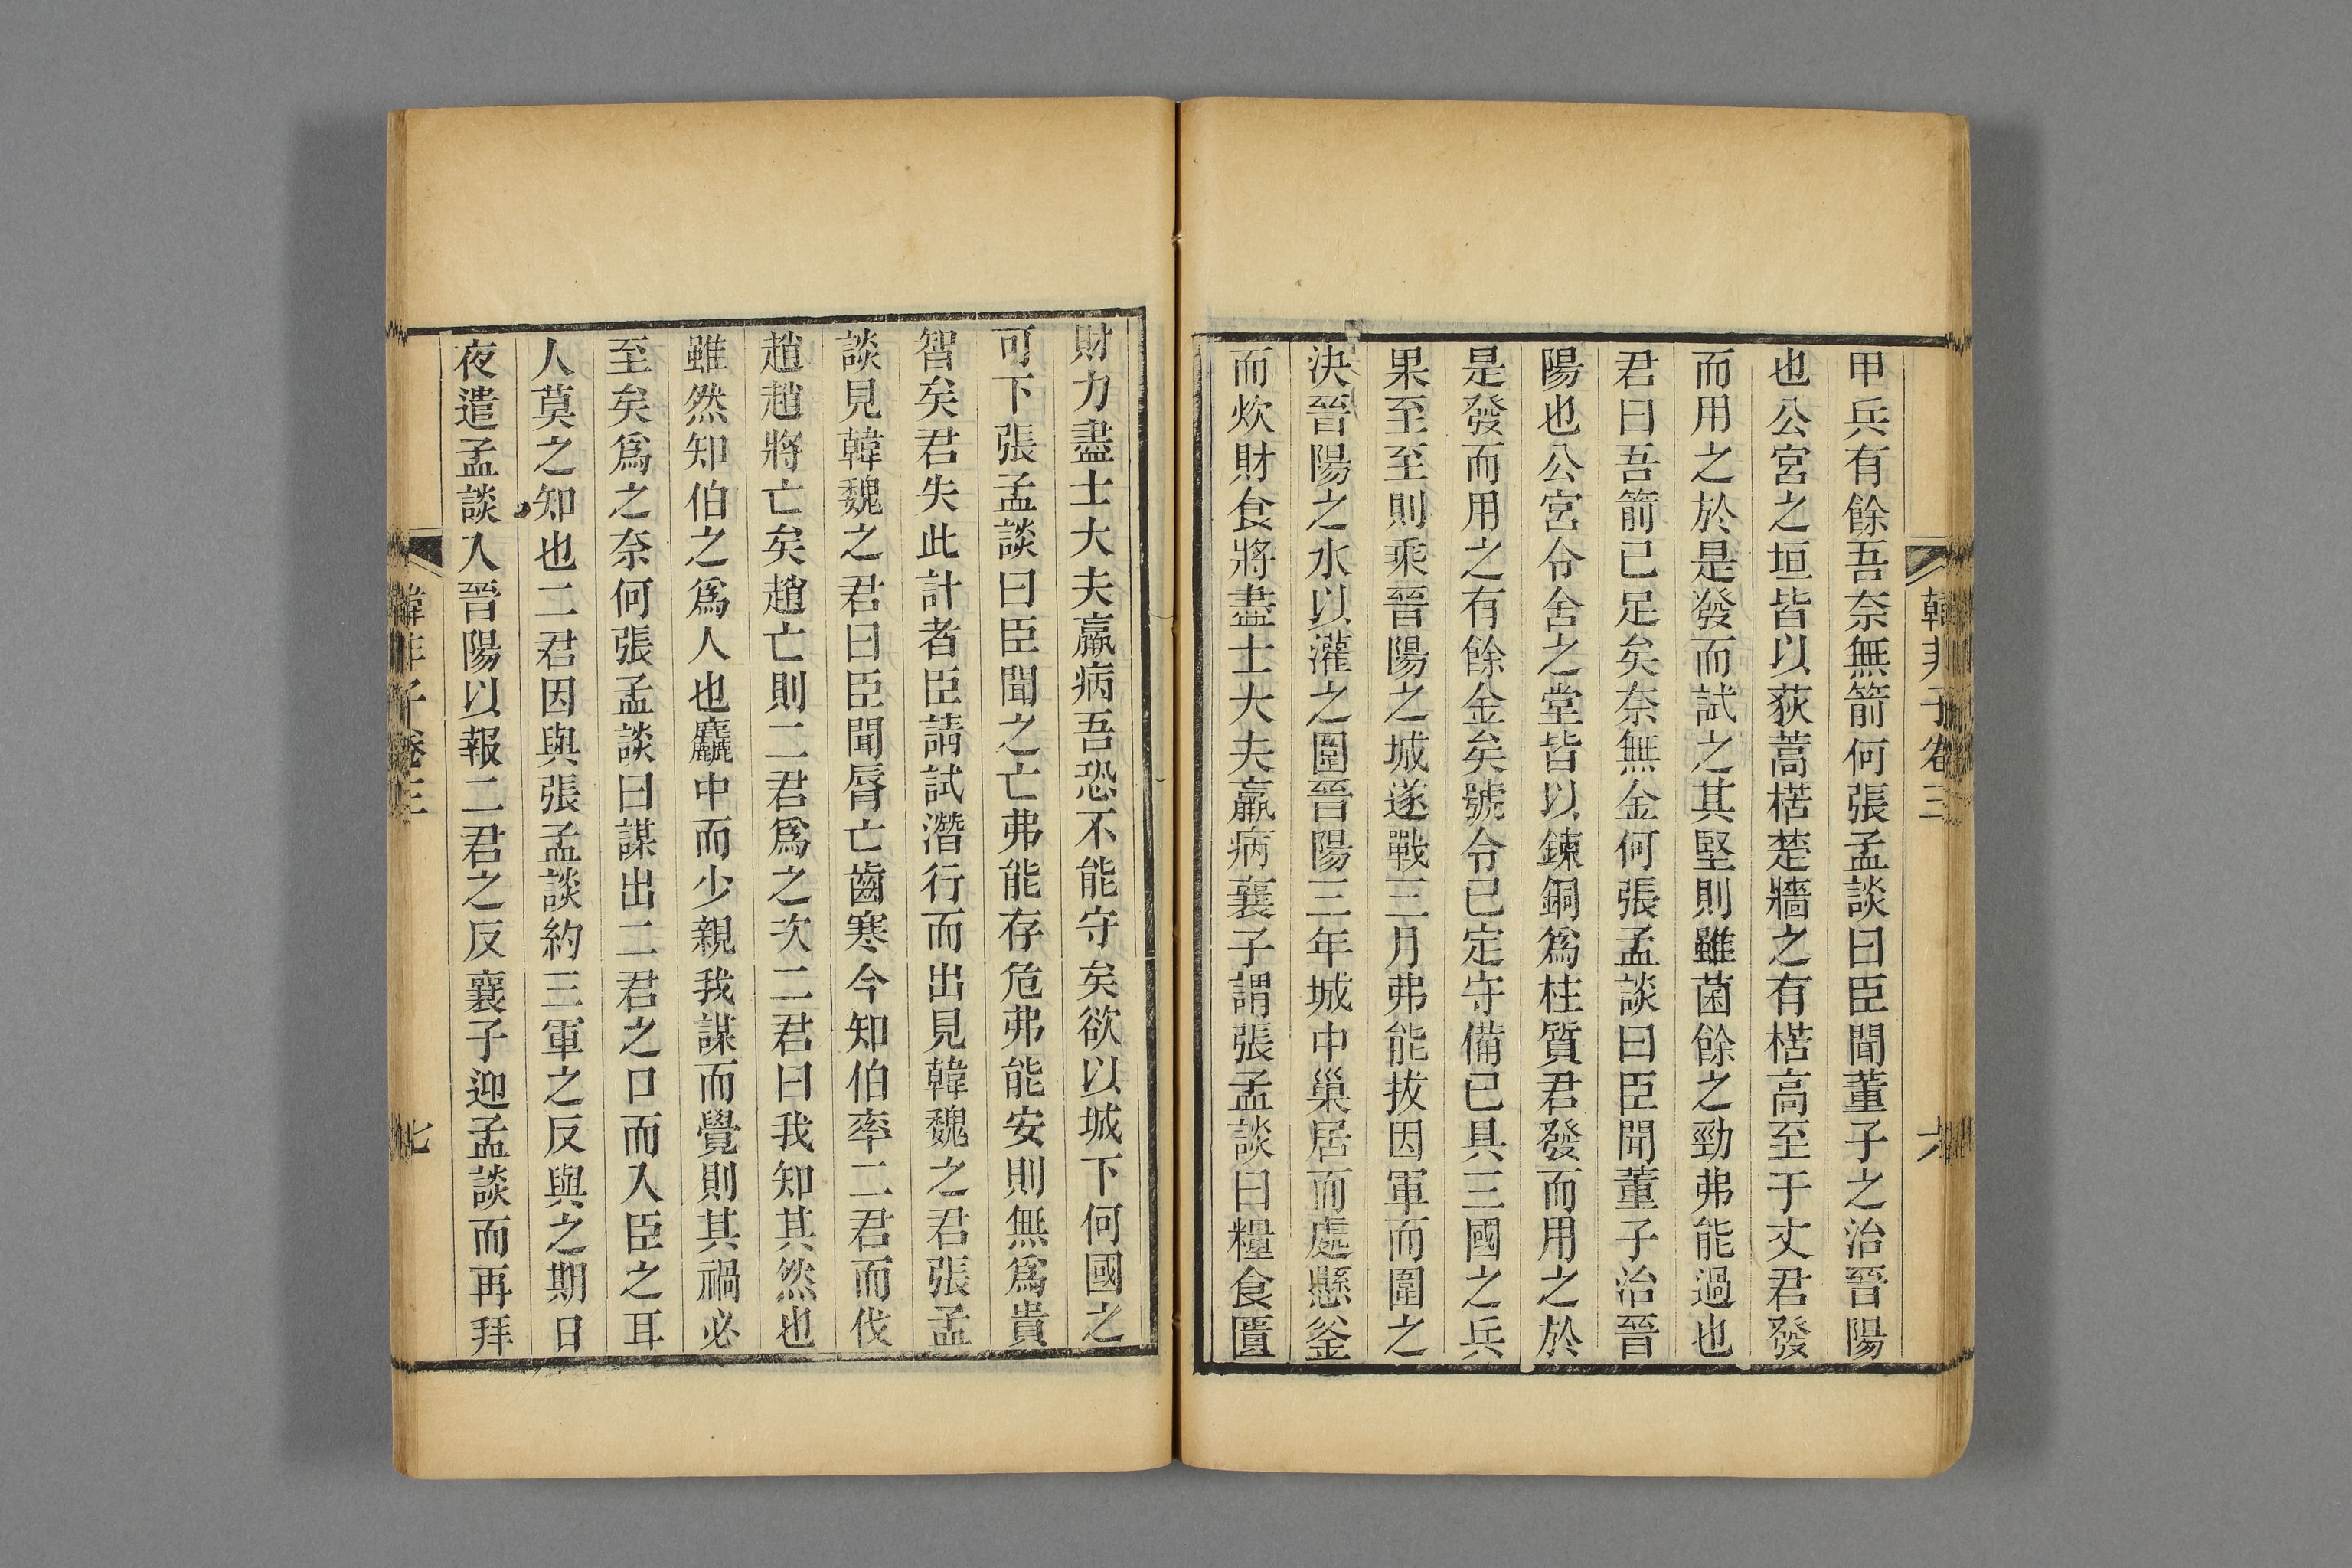 韓非子卷三
六
甲兵有餘吾奈無箭何張孟談曰臣聞董子之治晉陽
也公宮之垣皆以荻蒿楛楚牆之有楛高至于丈君發
而用之於是發而試之其堅則雖菌餘之勁弗能過也
君曰吾箭已足矣奈無金何張孟談曰臣聞董子治晉
陽也公宮令舍之堂皆以鍊銅爲柱質君發而用之於
是發而用之有餘金矣號令已定守備已具三國之兵
果至至則乘晉陽之城遂戰三月弗能拔因軍而圍之
決晉陽之水以灌之圍晉陽三年城中巢居而處懸釜
而炊財食將盡士大夫羸病襄子謂張孟談曰糧食匱
財力盡士大夫羸病吾恐不能守矣欲以城下何國之
可下張孟談曰臣聞之亡弗能存危弗能安則無爲貴
智矣君失此計者臣請試潛行而出見韓魏之君張孟
談見韓魏之君曰臣聞脣亡齒寒今知伯率二君而伐
趙趙將亡矣趙亡則二君爲之次二君曰我知其然也
雖然知伯之爲人也麤中而少親我謀而覺則其禍必
至矣爲之奈何張孟談曰謀出二君之口而入臣之耳
人莫之知也二君因與張孟談約三軍之反與之期日
夜遣孟談入晉陽以報二君之反襄子迎孟談而再拜
韓非子卷三
七